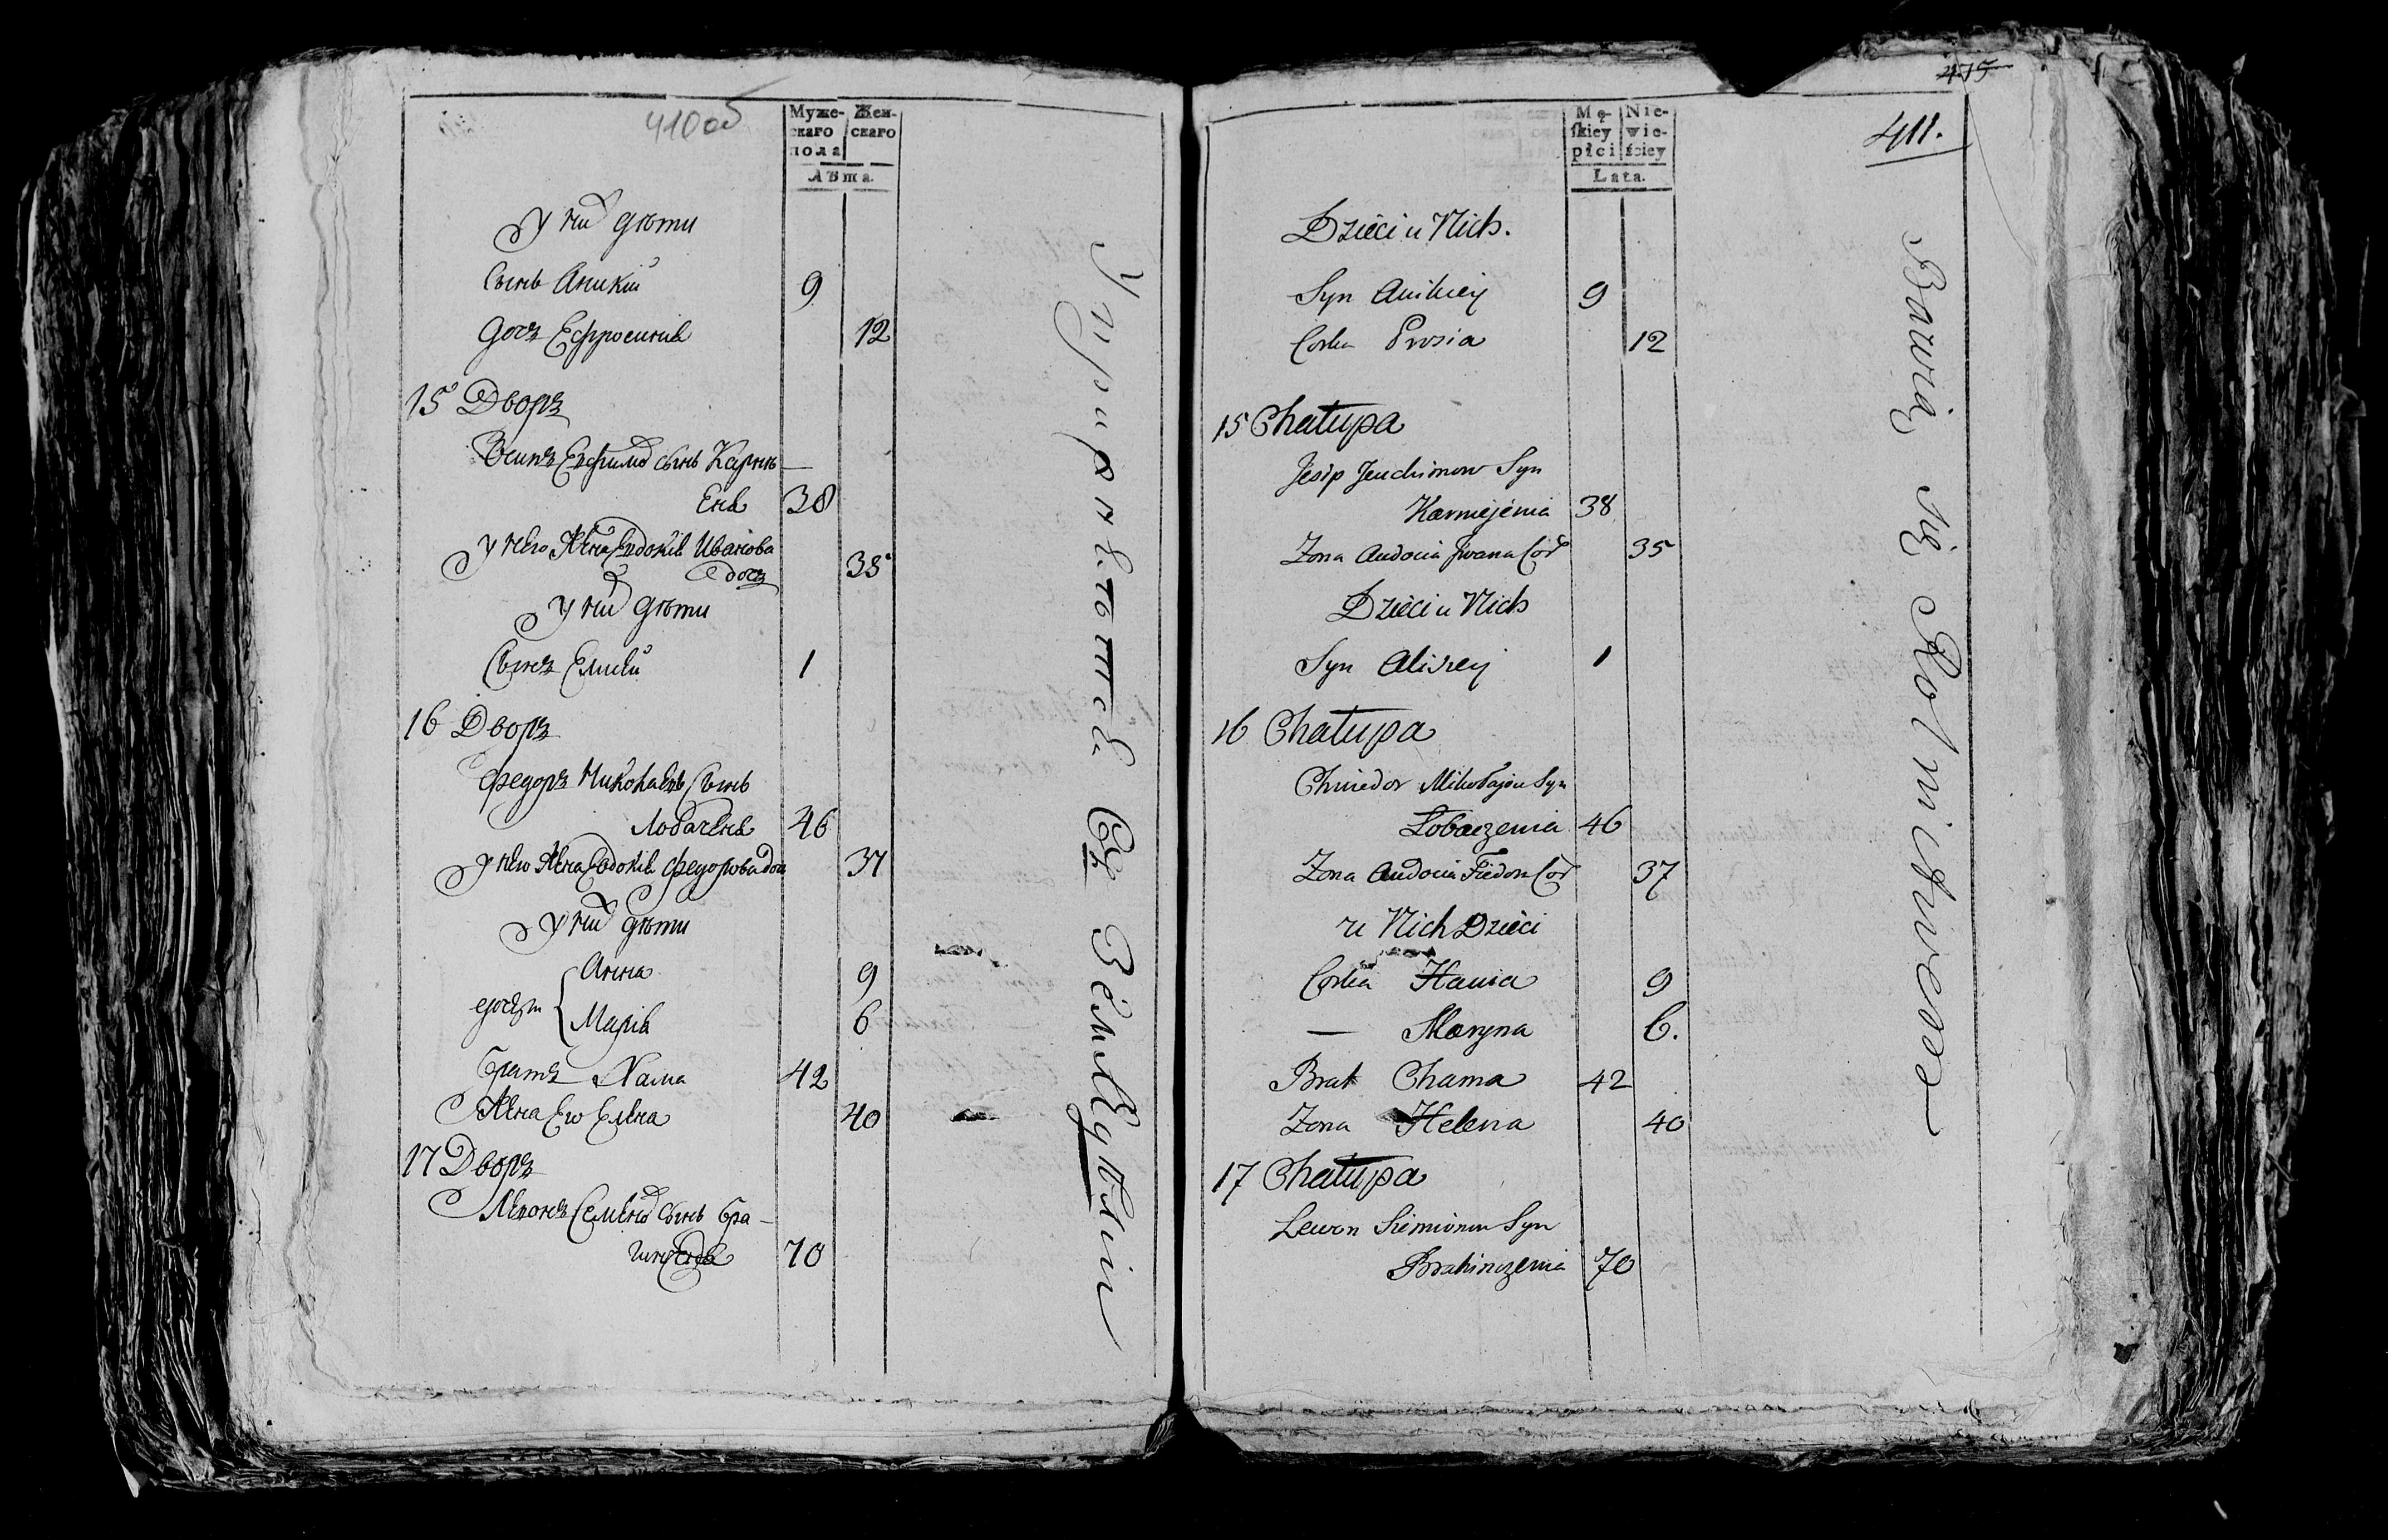 410об
Муже-
скаго
пола
Жен-
скаго
Лѣта.
У них дѣти
Сынъ Аникій 9
дочъ Ефросинія 12
15 Дворъ
Осипъ Евфимов сынъ Карнѣ-
еня 38
У него жена Евдокія Иванова
дочъ 35
У них дѣти
Сынъ Елисѣй 1
16 Дворъ
Федоръ Николаевъ Сынъ
Лобаченя 46
У него жена Евдокія Федорова доч 37
У них дѣти
дочери
Анна 9
Марія 6
братъ Хама 42
Жена Его Елена 40
17 Дворъ
Левонъ Семенов сынъ Бра-
гинченя 70
Упражняются Въ Земледѣліи
475
411.
Mę-
ſkiey
płci
Nie-
wie-
ściey
Lata.
Dzieci u Nich.
Syn Anikiey 9
Corka Prosia 12
15 Chałupa
Jesip Jeuchimow Syn
Karniejenia 38
Zona Audocia Jwana Cor 35
Dzieci u Nich
Syn Alisiey 1
16 Chałupa
Chwiedor Mikołajow Syn
Łobaczenia 46
Zona Audocia Fiedora Cor 37
u Nich Dzieci
Corka Hanna 9
— Maryna 6.
Brat Chama 42
Zona Helena 40
17 Chałupa
Lewon Siemionow Syn
Brahinczenia 70
Bawią się Rolnictwem